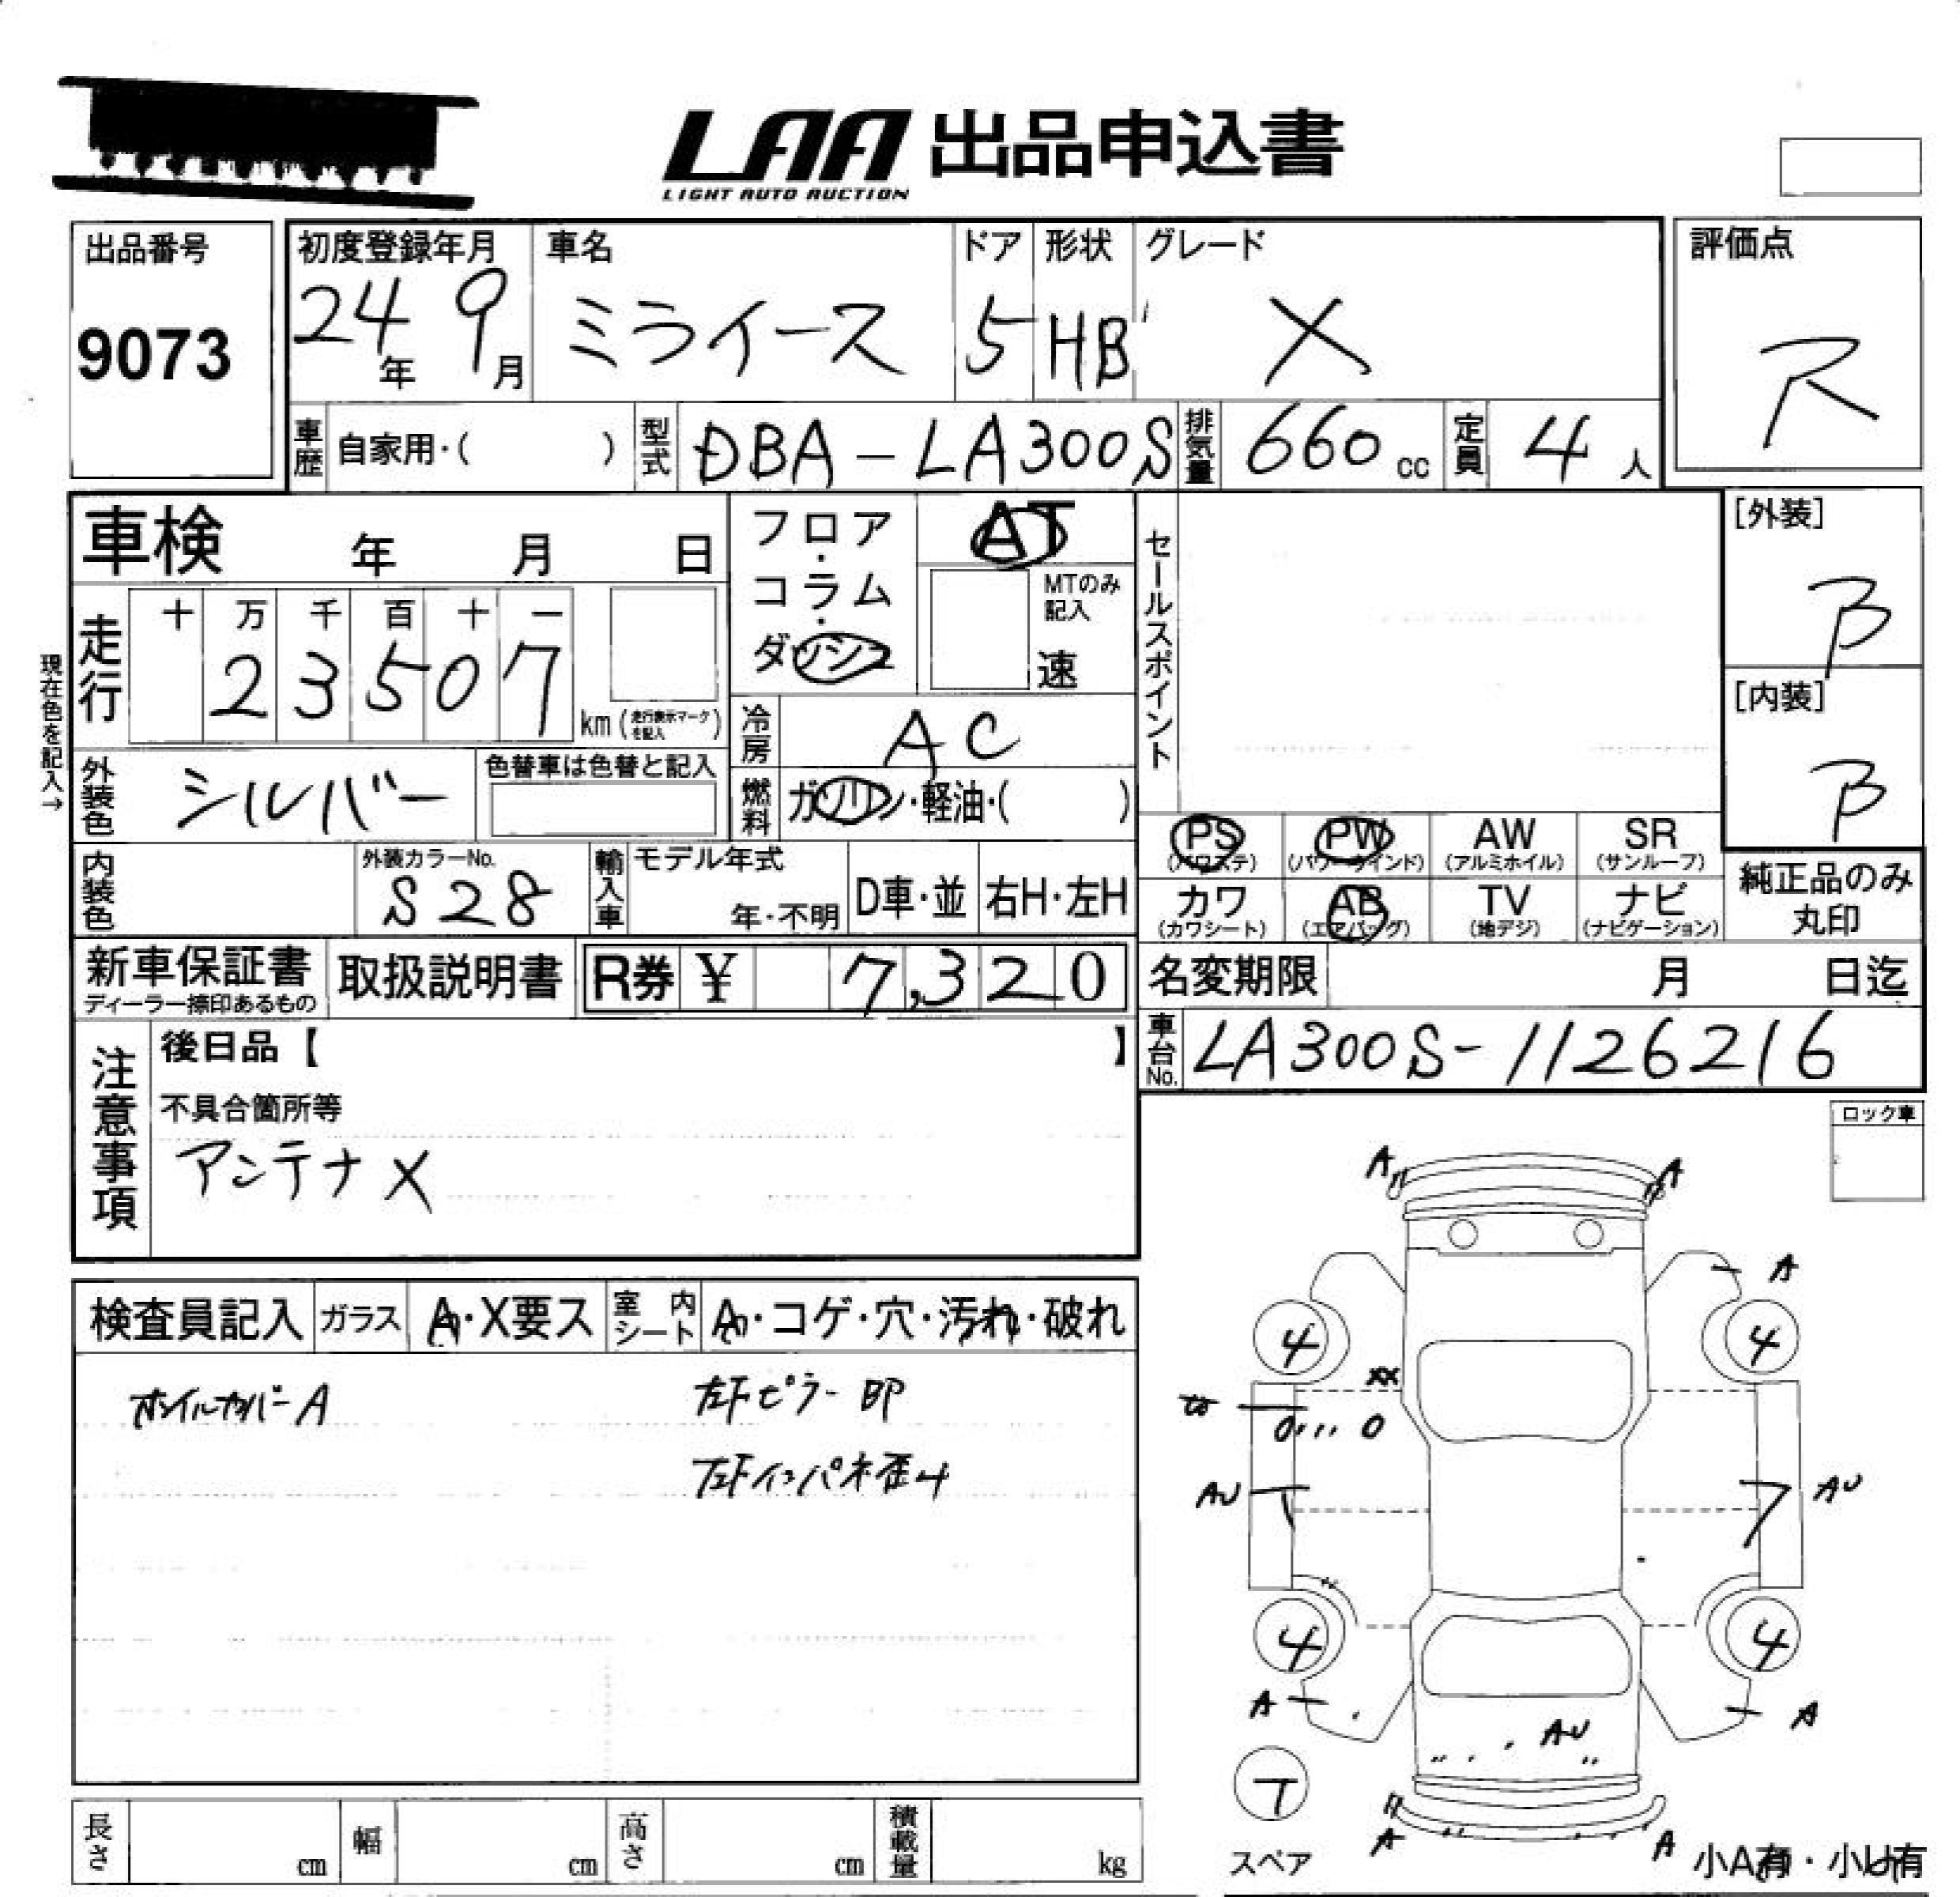 LAA 出品申込書
LIGHT AUTO AUCTION
出品番号
9073
初度登録年月
24年 9月
車名
ミライース
ドア
5
形状
HB
グレード
X
評価点
R
車歴 自家用・( )
型式 DBA-LA300S
排気量 660 cc
定員 4 人
車検 年 月 日
フロア・コラム・ダッシュ
AT
MTのみ記入
速
セールスポイント
[外装]
B
[内装]
B
現在色を記入→
走行
十 万 千 百 十 一
2 3 5 0 7
km (走行表示マークを記入)
冷房 AC
外装色 シルバー
色替車は色替と記入
燃料 ガソリン・軽油・( )
PS (パワステ)
PW (パワーウインド)
AW (アルミホイル)
SR (サンルーフ)
カワ (カワシート)
AB (エアバッグ)
TV (地デジ)
ナビ (ナビゲーション)
純正品のみ丸印
内装色
外装カラーNo.
S28
輸入車
モデル年式
年・不明
D車・並
右H・左H
新車保証書
ディーラー捺印あるもの
取扱説明書
R券 ¥ 7,320
名変期限 月 日迄
車台No. LA300S-1126216
注意事項
後日品【 】
不具合箇所等
アンテナX
ロック車
検査員記入
ガラス
A・X要ス
室内シート
A・コゲ・穴・汚れ・破れ
ホイルカバーA
左Fピラー印
左Fインパネ歪み
A A
A
4 4
XX
AU AU
4 4
A A
AU
T
スペア
A A
小A有・小U有
長さ cm
幅 cm
高さ cm
積載量 kg